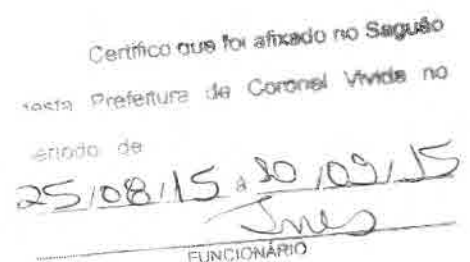 Certifico que foi afixado no Saguão
desta Prefeitura de Coronel Vivida no
período de
25/08/15 a /09/15
Ines
FUNCIONÁRIO